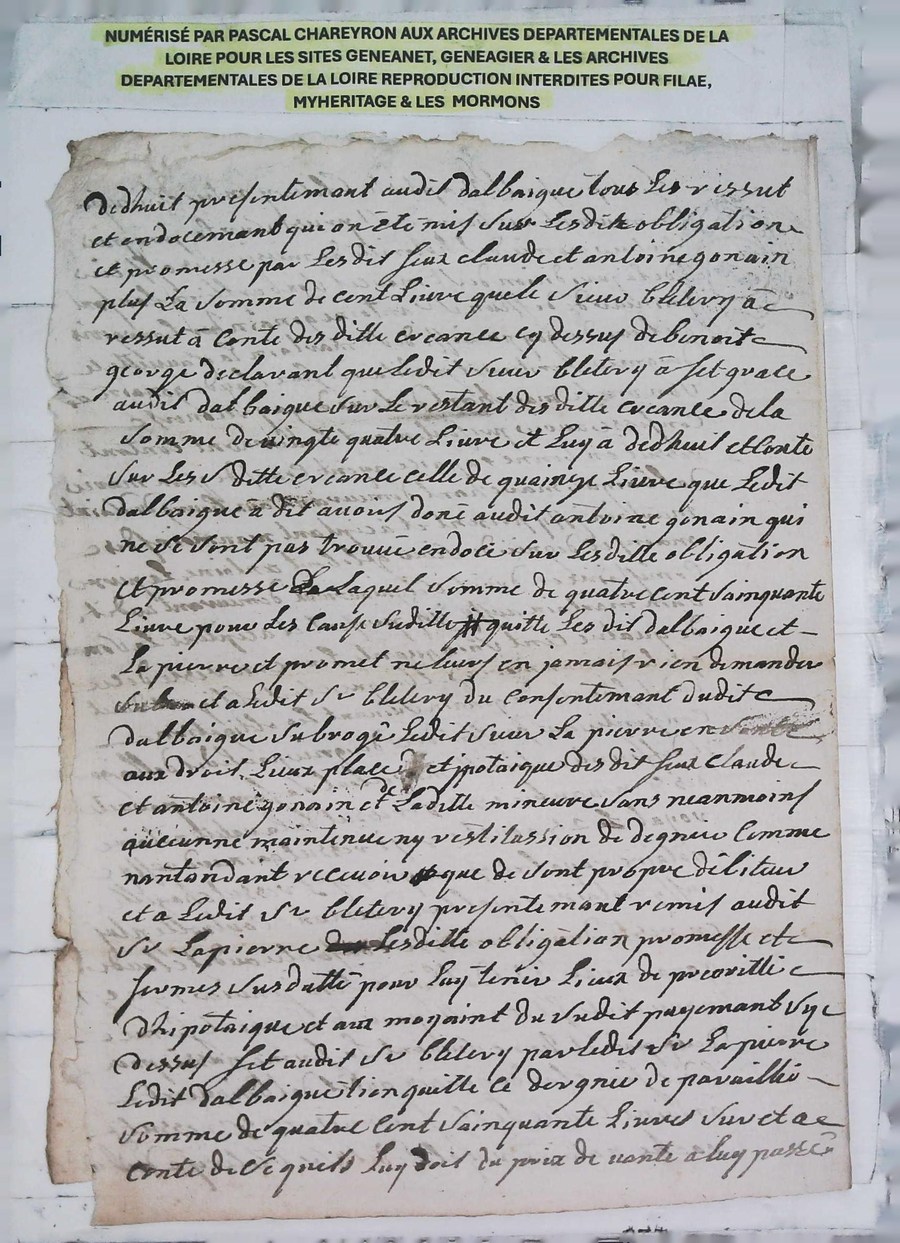 NUMÉRISÉ PAR PASCAL CHAREYRON AUX ARCHIVES DEPARTEMENTALES DE LA
LOIRE POUR LES SITES GENEANET, GENEAGIER & LES ARCHIVES
DEPARTEMENTALES DE LA LOIRE REPRODUCTION INTERDITES POUR FILAE,
MYHERITAGE & LES MORMONS
dedhuit presentemant audit dalbaigue tous les ressut
et endocemant qui on été mis sur lesdite obligation
et promesse par lesdit feux claude et antoine gonain
plus la somme de cent livre que le sieur bletery a
ressut a conte des ditte creance cy dessus de benoit
george declarant que ledit sieur bletery a fet grace
audit dalbaigue sur le restant des ditte creance de la
somme de vingte quatre livre et luy a dedhuit et conte
sur les ditte creance celle de quainze livre que ledit
dalbaigue a dit avoir doné audit antoine gonain qui
ne se sont pas trouvé endocé sur lesditte obligation
et promesse de laquel somme de quatre cent sainquante
livre pour les cause suditte quitte les dit dalbaigue et
la pierre et promet ne leurs en jamais rien demander
et a ledit sr bletery du consentemant dudit
dalbaigue subrogé ledit sieur la pierre en
aux droit, lieux place et ipotaique des dit feux claude
et antoine gonain et de laditte mineure sans neanmoins
aucunne maintenue ny restitussion de degnie comme
nantandant recevoir que de sont propre debiteur
et a ledit sr bletery presentemant remis audit
sr lapierre lesditte obligation promesse et
sus datté pour luy tenir lieux de preoritté
dhipotaique et aux moyaint du sudit payemant sy
dessus fet audit sr bletery par ledit sr la pierre
ledit dalbaigue tien quitte ce dergnie de pareille
somme de quatre cent sainquante livres sur et a
conte de se quils luy doit du prix de vante a luy passé